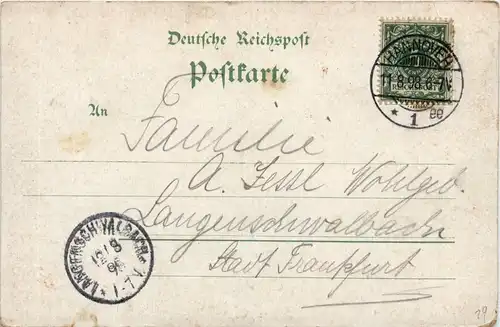 Deutsche Reichspost
Postkarte
HANNOVER
11.8.98.6-7V.
* 1 ee
An
Familie
A. Jessl Wohlgeb.
Langenschwalbach
Stadt Frankfurt
LANGENSCHWALBACH
12/8
98
* 1-7V.
29